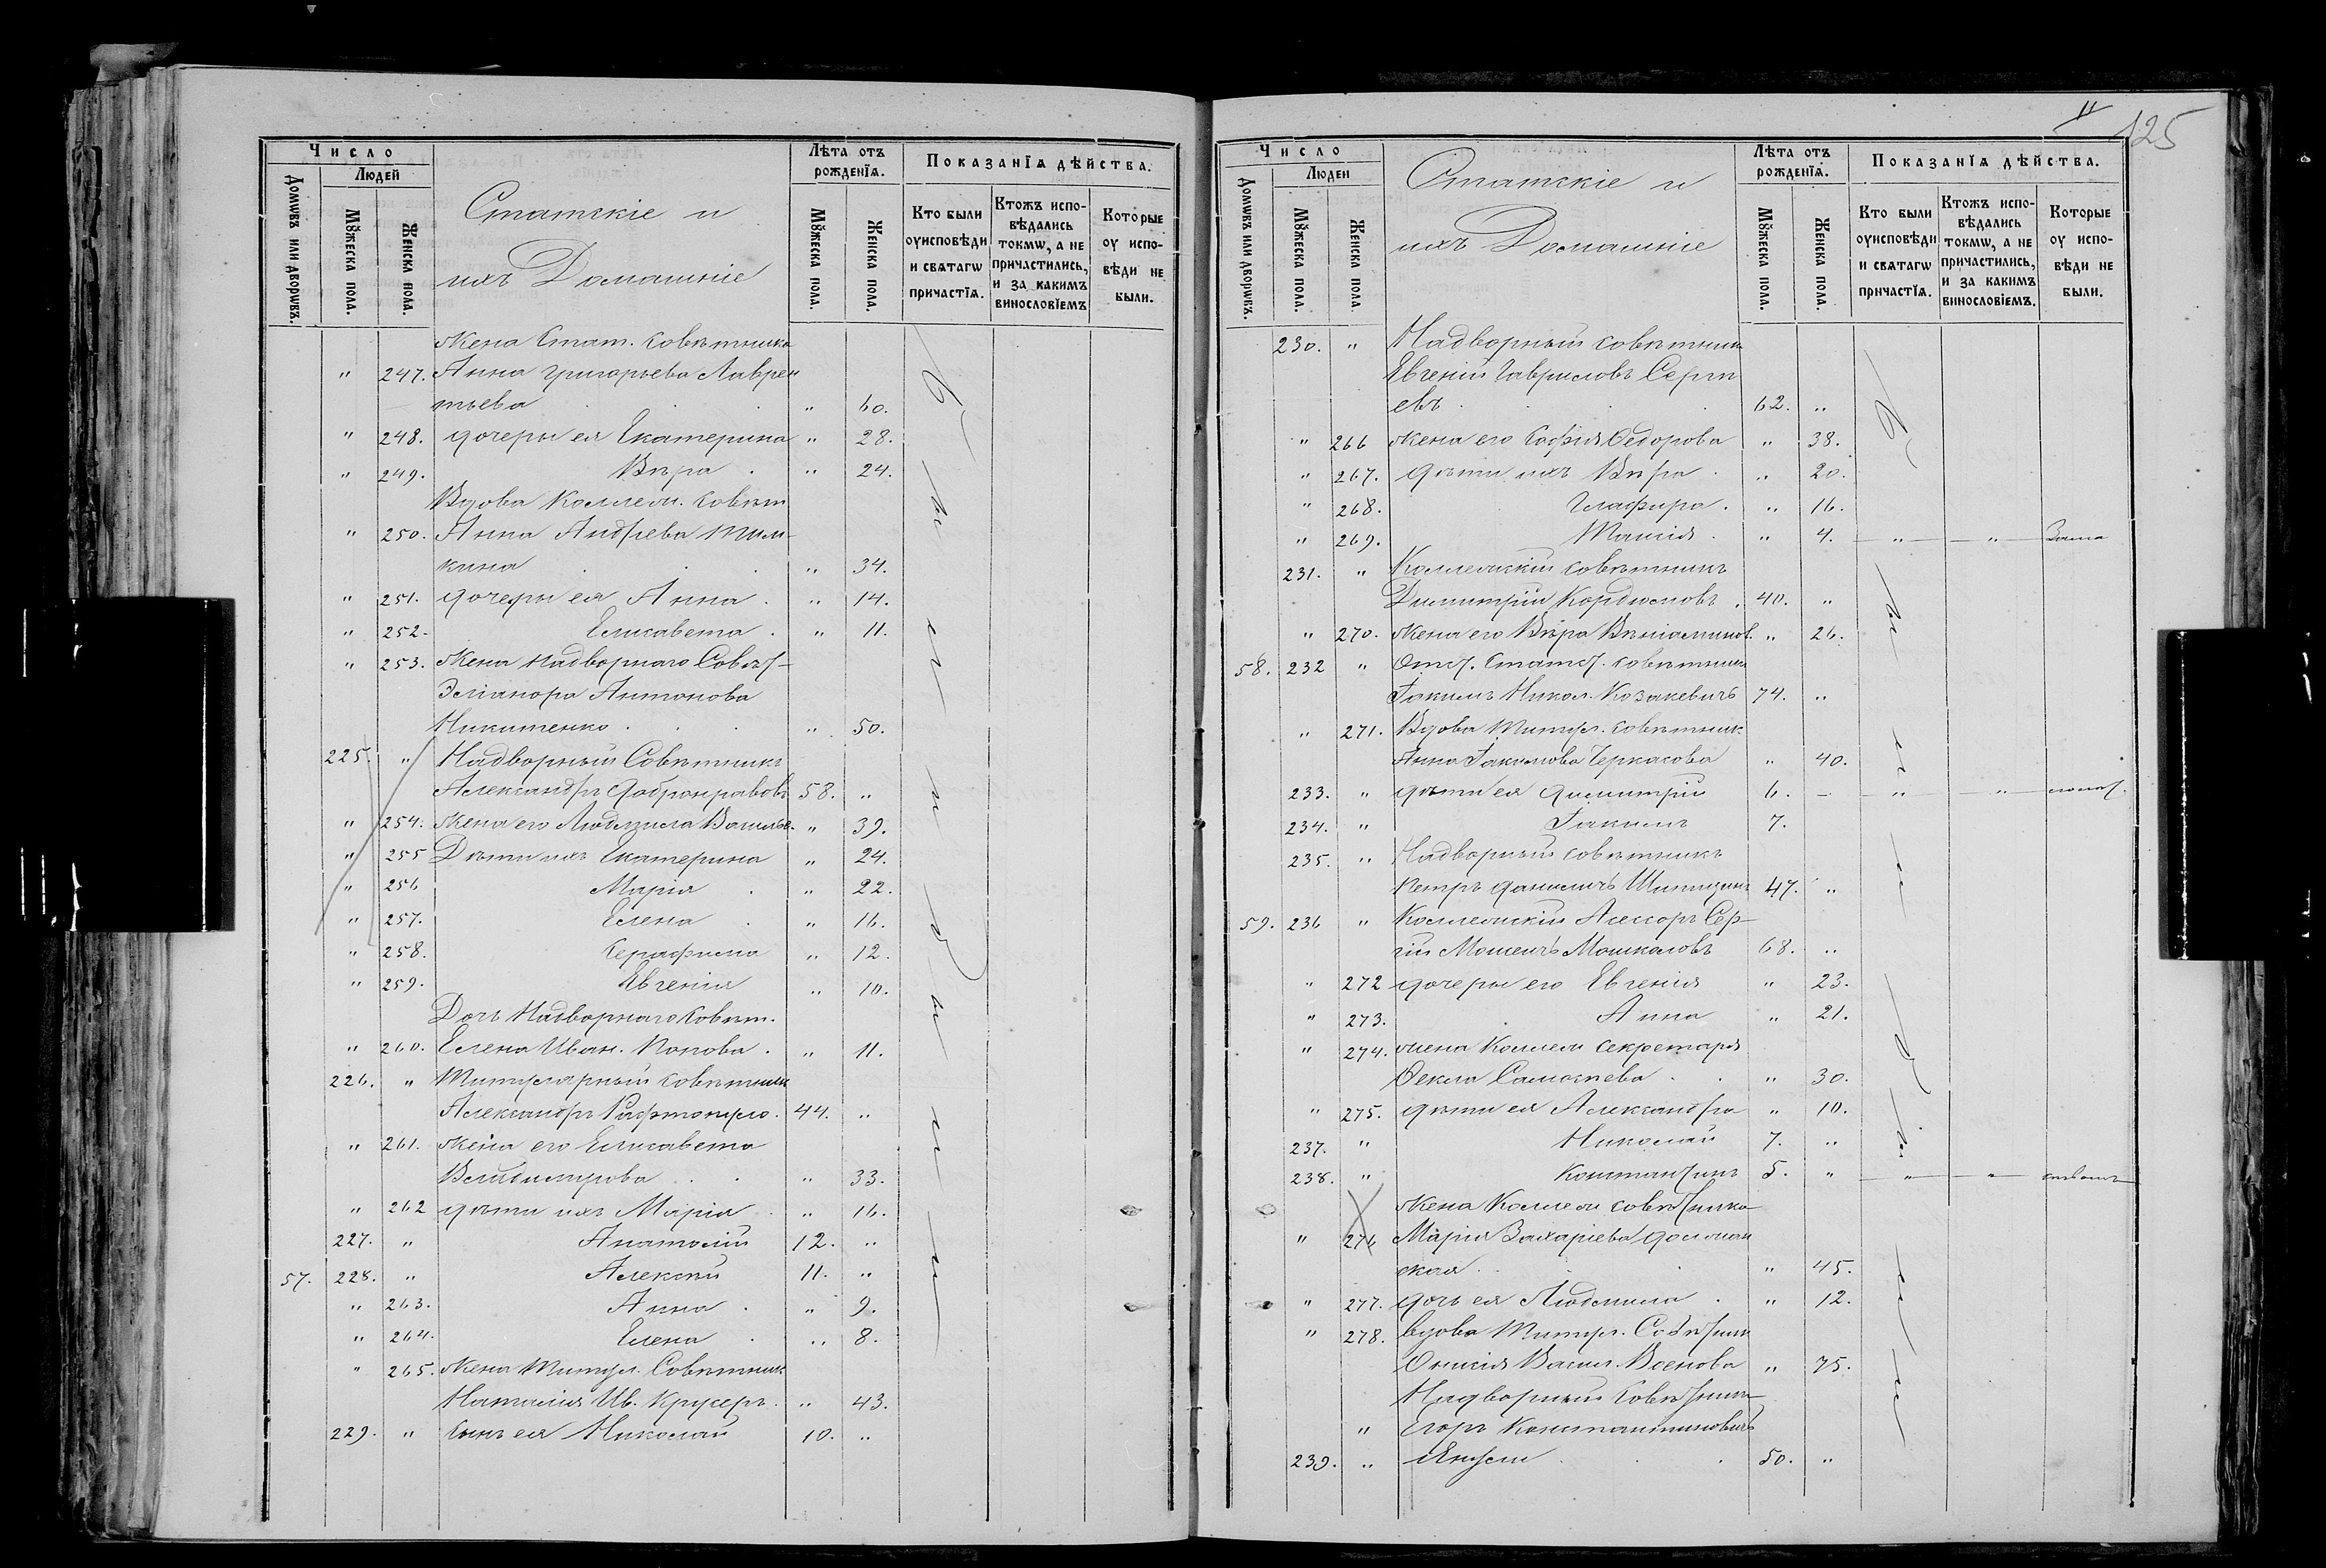 125
Число
Людей
Домѡвъ или дворѡвъ.
Мꙋжеска пола.
Женска пола.
Статскіе и
ихъ Домашніе
Лѣта отъ
рожденїѧ.
Мꙋжеска пола.
Женска пола.
Показанїѧ дѣйства.
Кто были
оуисповѣди
и свѧтагѡ
причастїѧ.
Ктожъ испо-
вѣдались
токмѡ, а не
причастились,
и за какимъ
винословїемъ
Которые
оу испо-
вѣди не
были.
Жена Стат. Совѣтника
" 247. Анна Григорьева Лаврен
тьева . . . " 60.
" 248. дочери ея Екатерина " 28.
" 249. Вѣра . " 24.
Вдова Коллеж. Совѣт
" 250. Анна Андреева
кина . . . " 34.
" 251. дочери ея Анна . " 14.
" 252. Елисавета . " 11.
" 253. Жена Надворнаго Совѣт-
Эліанора Антонова
Никитенко . . . " 50.
225. " Надворный Совѣтникъ
Александръ Добронравовъ 58. "
" 254. Жена его Людмила Васильев. " 39.
" 255 Дѣти ихъ Екатерина " 24.
" 256 Марія . " 22.
" 257. Елена . " 16.
" 258. Серафима " 12.
" 259. Евгенія " 10.
Дочь Надворнаго Совѣт.
" 260. Елена Иван. Попова . " 11.
226. " Титулярный Совѣтникъ
Александръ Рафтопуло . 44. "
" 261. Жена его Елисавета
. . " 33.
" 262 дѣти ихъ Марія . " 16.
227. " Анатолій 12. "
57. 228. " Алексѣй 11. "
" 263. Анна . " 9.
" 264. Елена . " 8.
" 265. Жена Титул. Совѣтник
Наталія Ив. Крусеръ . " 43.
229. " сынъ ея Николай 10. "
Число
Людей
Домѡвъ или дворѡвъ.
Мꙋжеска пола.
Женска пола.
Статскіе и
ихъ Домашніе
Лѣта отъ
рожденїѧ.
Мꙋжеска пола.
Женска пола.
Показанїѧ дѣйства.
Кто были
оуисповѣди
и свѧтагѡ
причастїѧ.
Ктожъ испо-
вѣдались
токмѡ, а не
причастились,
и за какимъ
винословїемъ.
Которые
оу испо-
вѣди не
были.
230. " Надворный Совѣтникъ
Евгеній Гавриловъ Серги
евъ . . . 62. "
" 266 Жена его Софія Ѳедорова " 38.
" 267. дѣти ихъ Вѣра . " 20.
" 268. Глафира . " 16.
" 269. . " 4. " "
231. " Коллежскій Совѣтникъ
Димитрій Кордюковъ . 40. "
" 270. Жена его Вѣра Веніаминов. " 26.
58. 232 " Отст. Статск. Совѣтникъ
Іакимъ Никол. Козакевичъ 74. "
" 271. Вдова Титул. Совѣтник
Анна Іакимова Черкасова " 40.
233. " дѣти ея Димитрій 6. - " "
234. " Іакимъ 7.
235. " Надворный Совѣтникъ
Петръ Даниличъ 47. "
59. 236 " Коллежскій Асессоръ Сер-
гій Мошкаловъ 68. "
" 272 дочери его Евгенія " 23.
" 273. Анна " 21.
" 274. жена Коллеж Секретаря
Ѳекла . . " 30.
" 275. дѣти ея Александра " 10.
237. " Николай 7. "
238. " Константинъ 5. " " "
Жена Коллеж Совѣтника
" 276 Марія Захаріева
ская . . " 45.
" 277. дочь ея Людмила . " 12.
" 278. Вдова Титул. Совѣтник
Васил. Воснова " 75.
Надворный Совѣтникъ
" Егоръ Константиновичъ
239. " . . 50. "